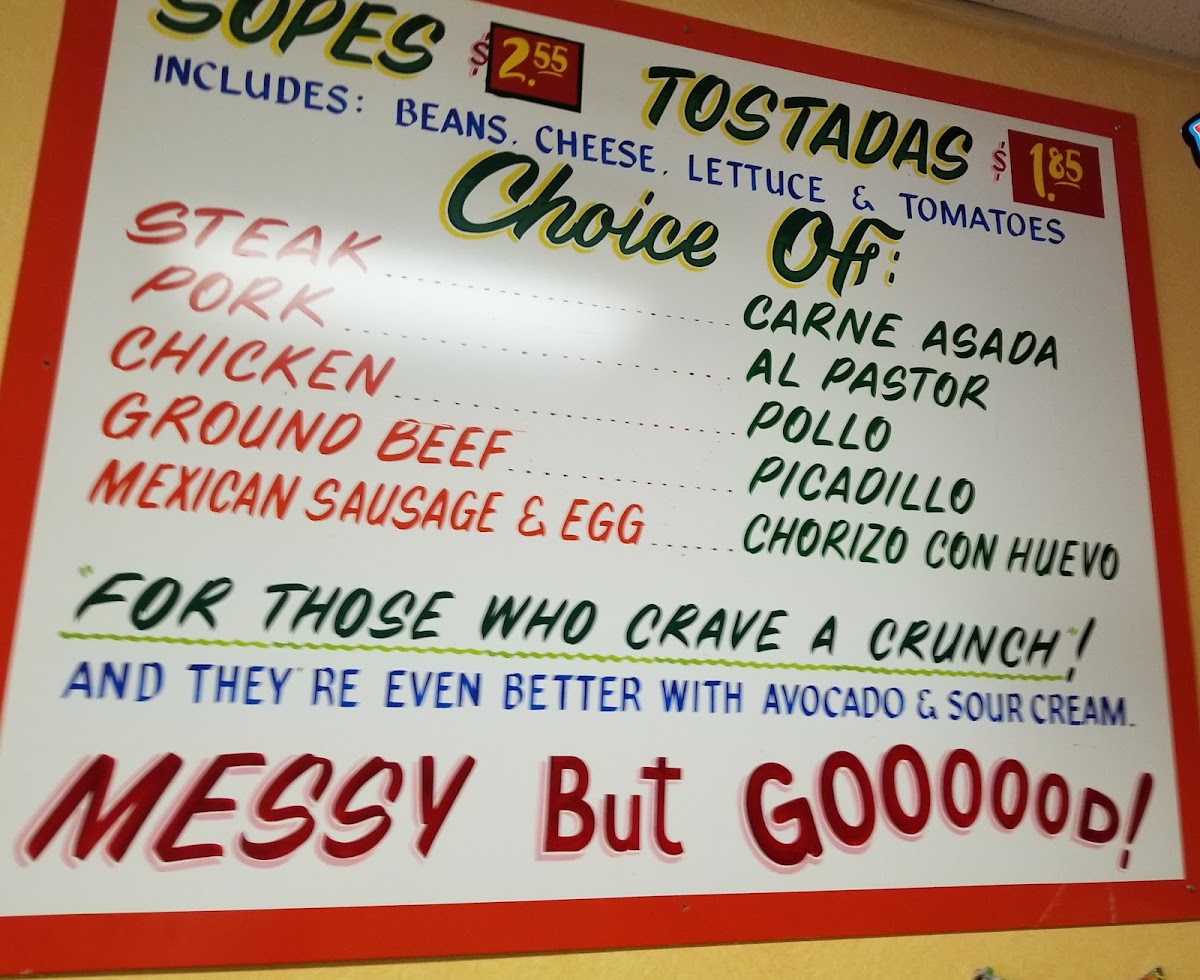 SOPES $2.55 TOSTADAS $1.85
INCLUDES: BEANS, CHEESE, LETTUCE & TOMATOES
Choice Of:
STEAK CARNE ASADA
PORK AL PASTOR
CHICKEN POLLO
GROUND BEEF PICADILLO
MEXICAN SAUSAGE & EGG CHORIZO CON HUEVO
"FOR THOSE WHO CRAVE A CRUNCH"!
AND THEY'RE EVEN BETTER WITH AVOCADO & SOUR CREAM.
MESSY But GOOOOOOD!